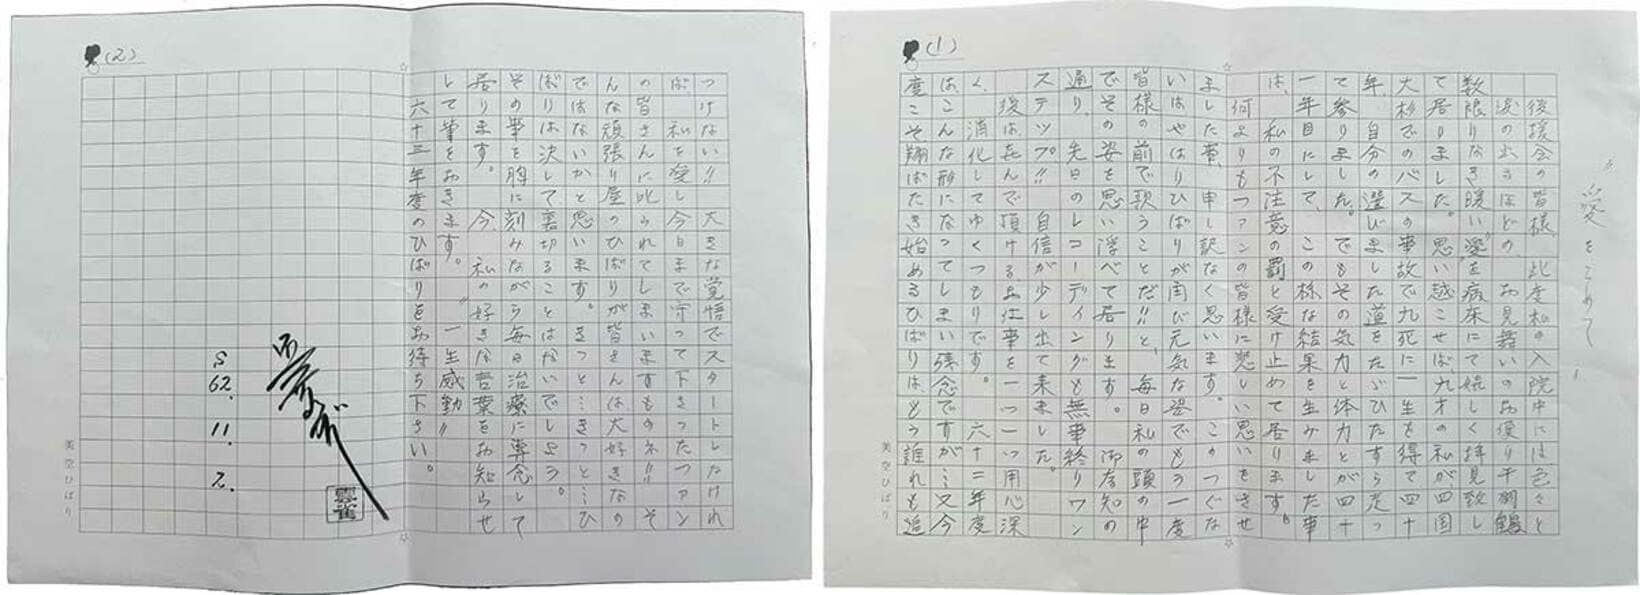 "愛をこめて"
(1)
後援会の皆様、此度私の入院中には色々と
涙の出るほどの、お見舞いのお便り千羽鶴
数限りなき暖い"愛"を病床にて嬉しく拝見致し
て居りました。思い越せば九才私が四国
大杉でのバスの事故で九死に一生を得て四十
年自分の選びました道をたゞひたすら走っ
て参りました。でもその気力と体力とが四十
一年目にして、この様な結果を生みました事
は、私の不注意の罰と受け止めて居ります。
何よりもファンの皆様に悲しい思いをさせ
ました事、申し訳なく思います。このつぐな
いはやはりひばりが再び元気な姿でもう一度
皆様の前で歌うことだ!!と、毎日私の頭の中
でその姿を思い浮べて居ります。御存知の
通り、先日のレコーディングも無事終りワン
ステップ!!自信が少し出て来ました。
後は喜んで頂けるお仕事を一つ一つ用心深
く、消化してゆくつもりです。六十二年度
は、こんな形になってしまい残念ですが…又今
度こそ翔ばたき始めるひばりはもう誰れも追
美空ひばり
(2)
つけない!!大きな覚悟でスタートしなけれ
ば、私を愛し今日まで守って下さったファン
の皆さんに叱られてしまいますものネ!!そ
んな頑張り屋のひばりが皆さんは大好きなの
ではないかと思います。きっと…きっと…ひ
ばりは決して裏切ることはないでしょう。
その事を胸に刻みながら毎日治療に専念して
居ります。今、私の好きな言葉をお知らせ
して筆をおきます。"一生感動"
六十三年度のひばりをお待ち下さい。
S62.11.2.
美空ひばり